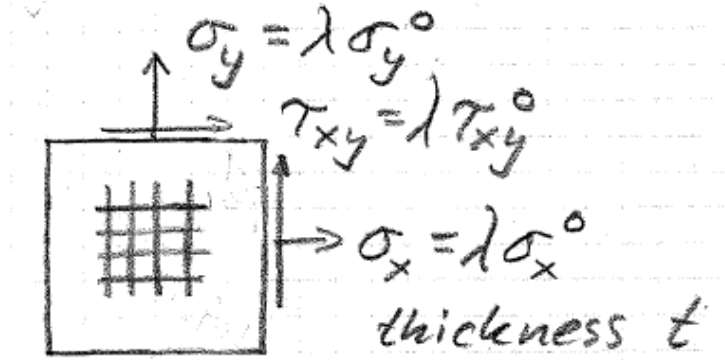 σy = λσy°
τxy = λτxy°
σx = λσx°
thickness t